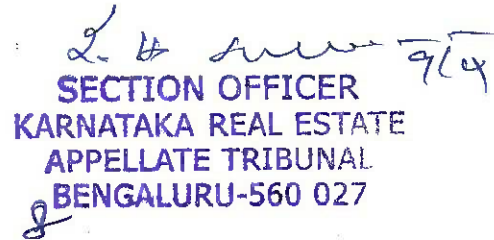 9/4
SECTION OFFICER
KARNATAKA REAL ESTATE
APPELLATE TRIBUNAL
BENGALURU-560 027